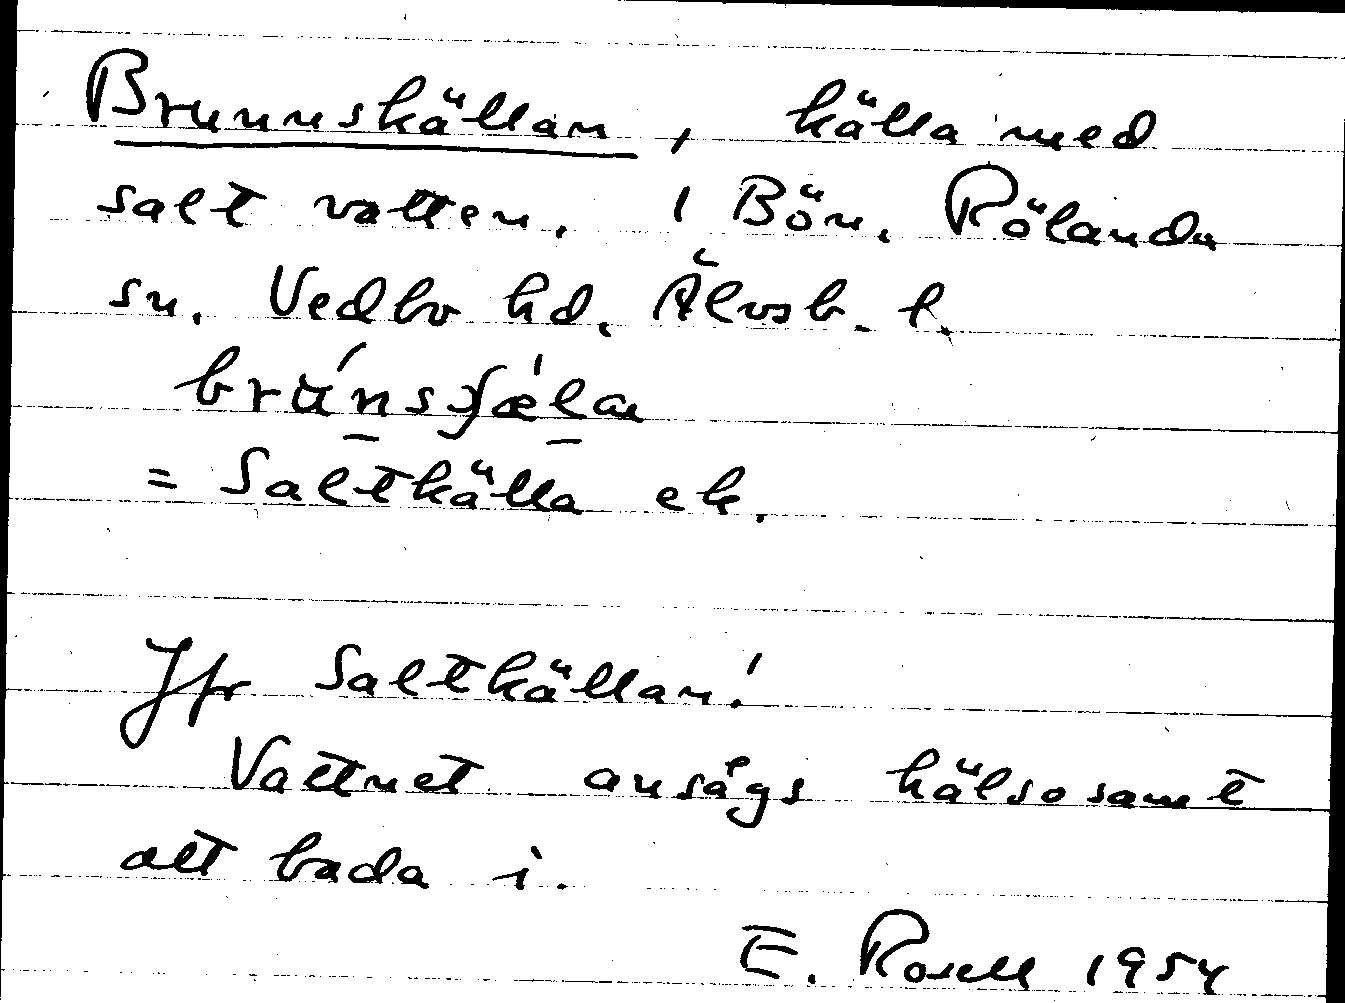 Brunnskällan, källa med
salt vatten. 1 Bön. Rölanda
sn. Vedbo hd. Älvsb. l.
= Saltkälla ek.
Jfr Saltkällan!
Vattnet ansågs hälsosamt
att bada i.
E. Rosell 1954